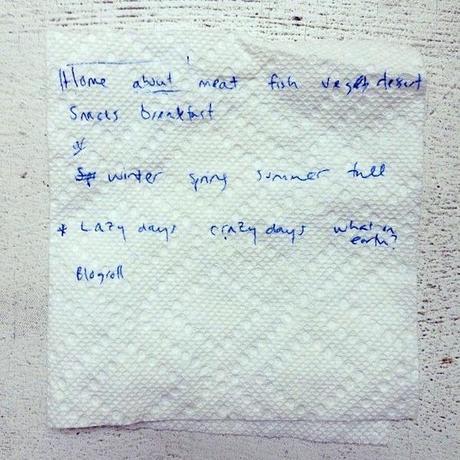 Home about meat fish veges desert
Snacks breakfast
winter spring summer fall
* Lazy days crazy days what on earth?
Blogroll